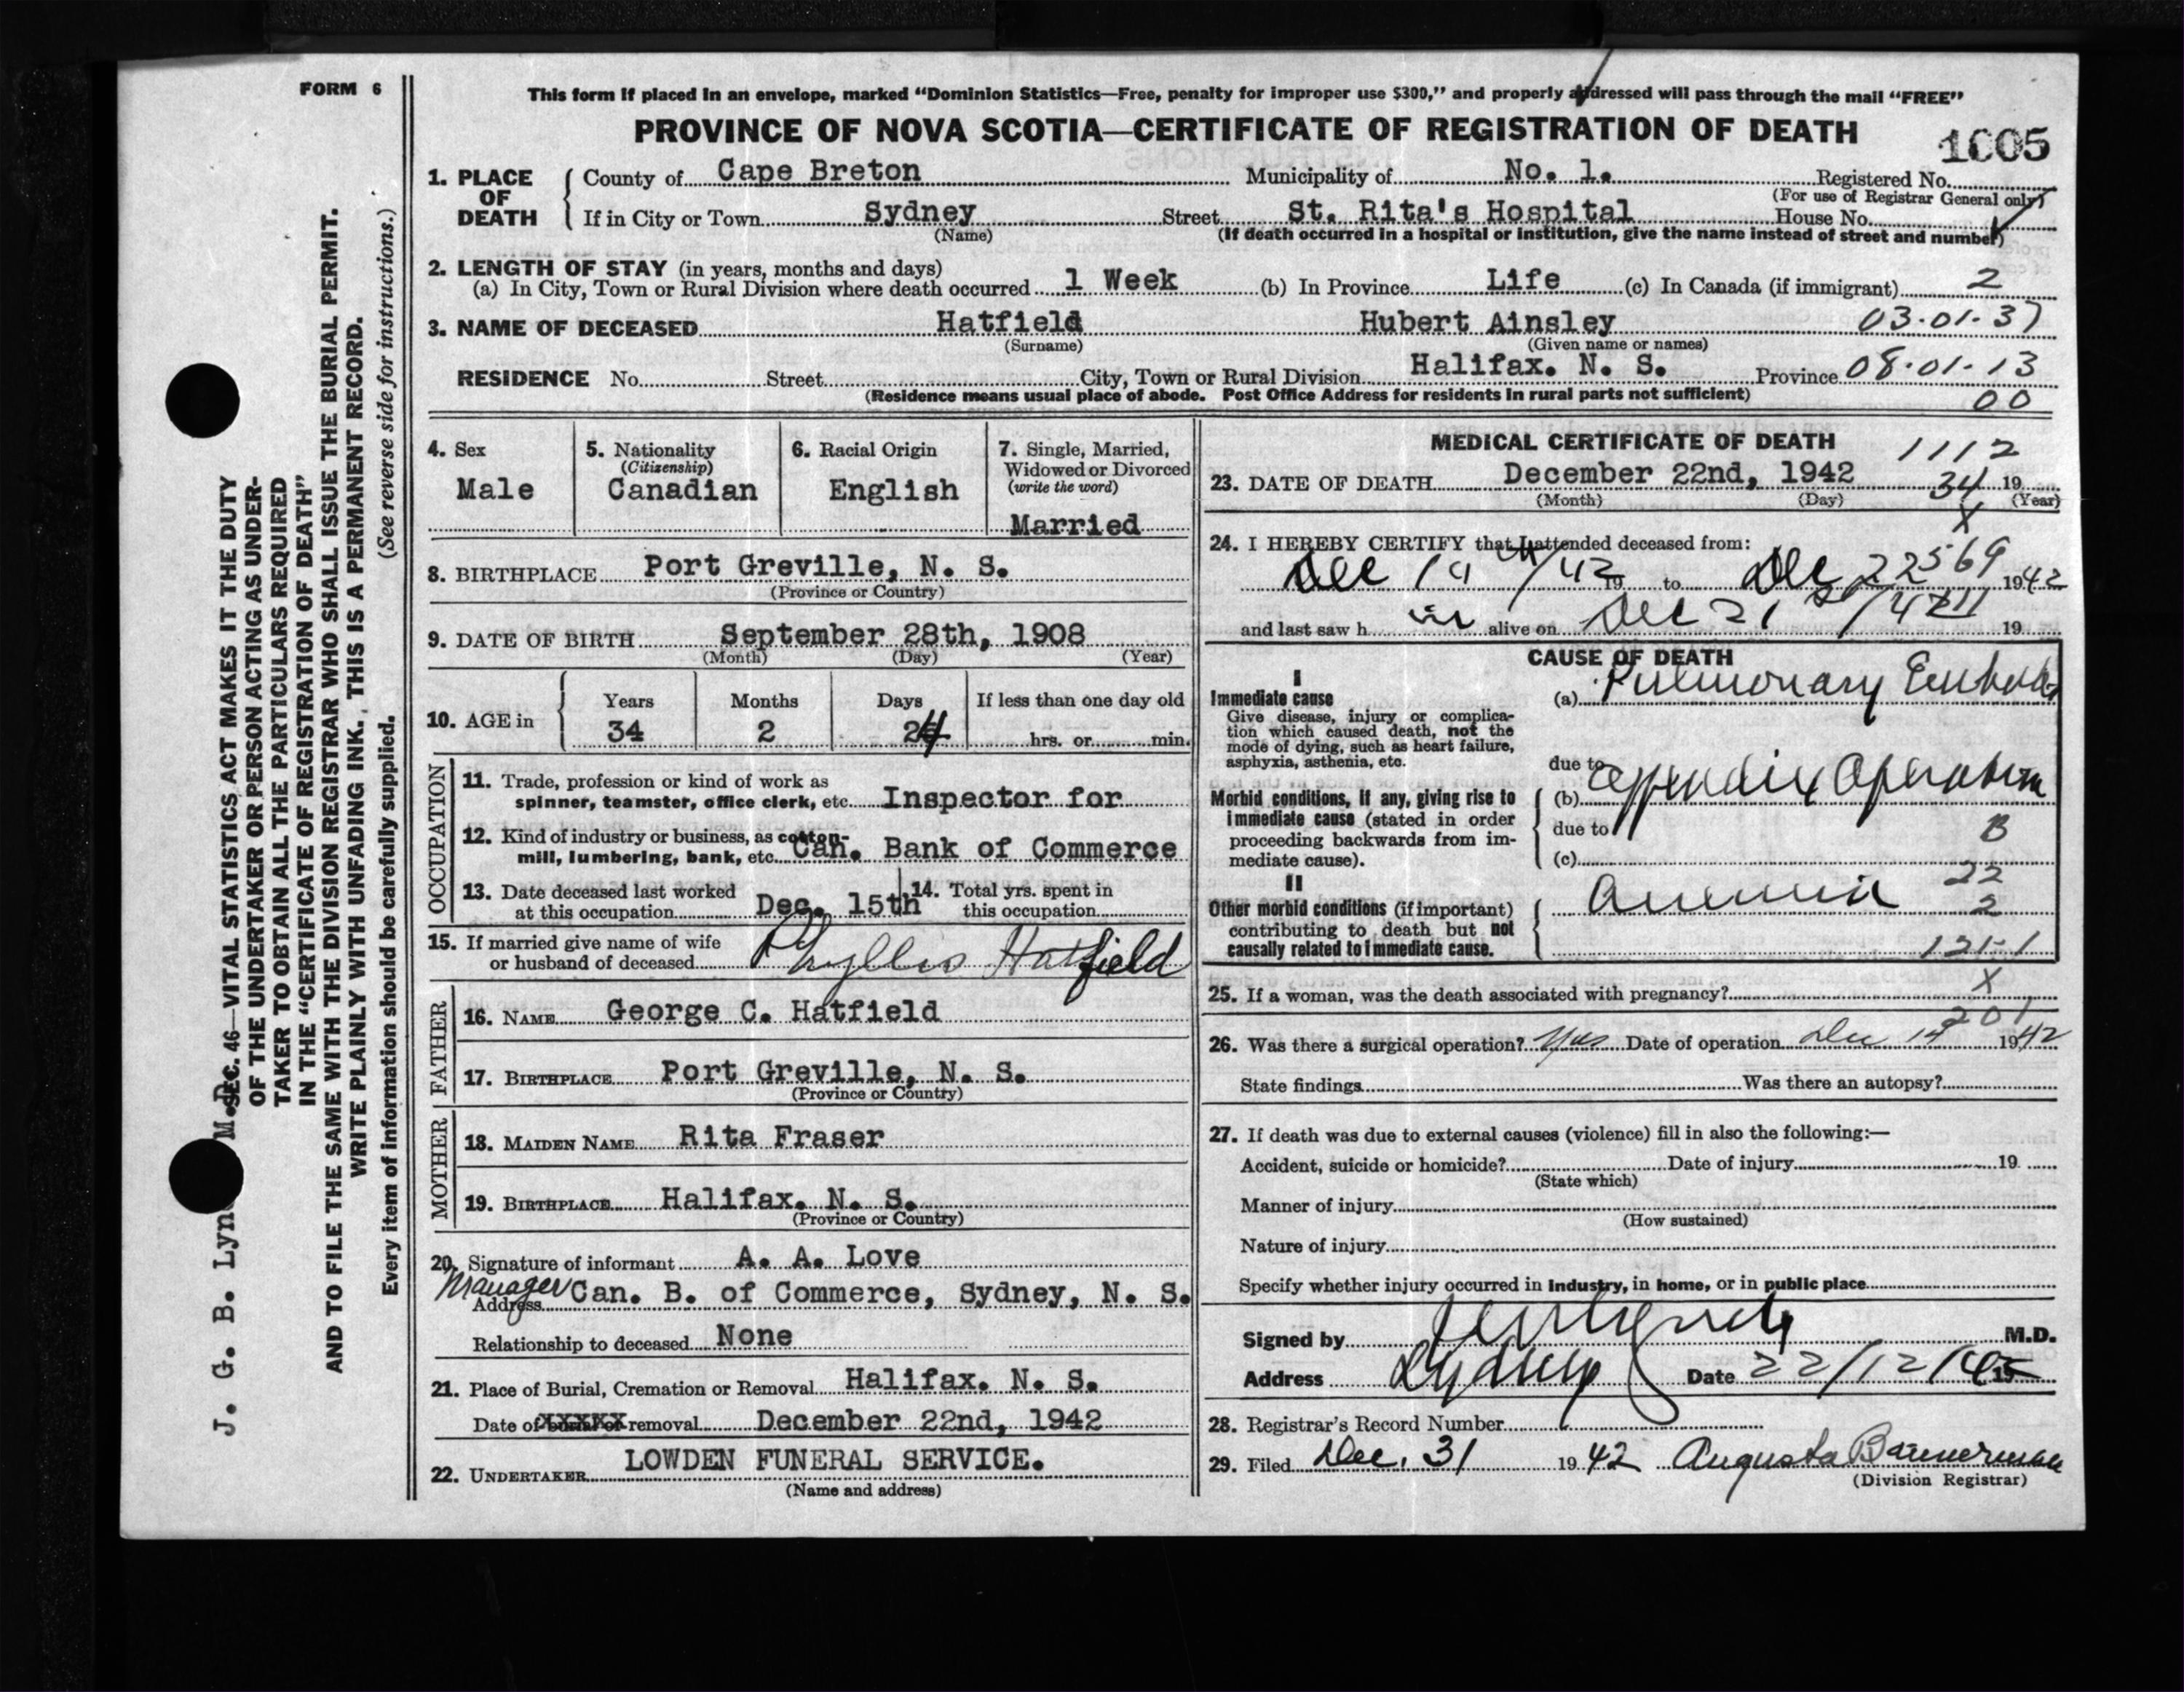 FORM 6
This form if placed in an envelope, marked “Dominion Statistics—Free, penalty for improper use $300,” and properly addressed will pass through the mail “FREE”
PROVINCE OF NOVA SCOTIA—CERTIFICATE OF REGISTRATION OF DEATH
1005
1. PLACE OF DEATH
County of Cape Breton Municipality of No. 1. Registered No.
(For use of Registrar General only)
If in City or Town Sydney Street St. Rita's Hospital House No.
(Name) (If death occurred in a hospital or institution, give the name instead of street and number)
2. LENGTH OF STAY (in years, months and days)
(a) In City, Town or Rural Division where death occurred 1 Week (b) In Province Life (c) In Canada (if immigrant) 2
3. NAME OF DECEASED Hatfield Hubert Ainsley 03.01.37
(Surname) (Given name or names)
RESIDENCE No. Street City, Town or Rural Division Halifax. N. S. Province 08.01.13
(Residence means usual place of abode. Post Office Address for residents in rural parts not sufficient) 00
4. Sex
Male
5. Nationality
(Citizenship)
Canadian
6. Racial Origin
English
7. Single, Married,
Widowed or Divorced
(write the word)
Married
8. BIRTHPLACE Port Greville, N. S.
(Province or Country)
9. DATE OF BIRTH September 28th, 1908
(Month) (Day) (Year)
10. AGE in
Years Months Days If less than one day old
34 2 24 hrs. or min.
OCCUPATION
11. Trade, profession or kind of work as
spinner, teamster, office clerk, etc. Inspector for
12. Kind of industry or business, as cotton-
mill, lumbering, bank, etc. Can. Bank of Commerce
13. Date deceased last worked
at this occupation Dec. 15th
14. Total yrs. spent in
this occupation
15. If married give name of wife
or husband of deceased Phyllis Hatfield
FATHER
16. NAME George C. Hatfield
17. BIRTHPLACE Port Greville, N. S.
(Province or Country)
MOTHER
18. MAIDEN NAME Rita Fraser
19. BIRTHPLACE Halifax. N. S.
(Province or Country)
20. Signature of informant A. A. Love
Manager
Address Can. B. of Commerce, Sydney, N. S.
Relationship to deceased None
21. Place of Burial, Cremation or Removal Halifax. N. S.
Date of burial or removal December 22nd, 1942
22. UNDERTAKER LOWDEN FUNERAL SERVICE.
(Name and address)
MEDICAL CERTIFICATE OF DEATH 1112
23. DATE OF DEATH December 22nd, 1942 34 19
(Month) (Day) (Year)
X
24. I HEREBY CERTIFY that I attended deceased from:
569
Dec 14th/42 19 to Dec 22 1942
and last saw h im alive on Dec 21st/42 11 19
CAUSE OF DEATH
I
Immediate cause
Give disease, injury or complica-
tion which caused death, not the
mode of dying, such as heart failure,
asphyxia, asthenia, etc.
(a) Pulmonary Embolus
due to
Morbid conditions, if any, giving rise to
immediate cause (stated in order
proceeding backwards from im-
mediate cause).
(b) appendix Operation
due to B
(c)
22
II
Other morbid conditions (if important)
contributing to death but not
causally related to immediate cause.
anemia 2
121-1
25. If a woman, was the death associated with pregnancy? X
201
26. Was there a surgical operation? Yes Date of operation Dec 14 1942
State findings Was there an autopsy?
27. If death was due to external causes (violence) fill in also the following:—
Accident, suicide or homicide? Date of injury 19
(State which)
Manner of injury
(How sustained)
Nature of injury
Specify whether injury occurred in industry, in home, or in public place
Signed by M.D.
Address Sydney Date 22/12/42
28. Registrar's Record Number
29. Filed Dec. 31 1942 Augusta Bannerman
(Division Registrar)
J. G. B. Lyn M.D.
SEC. 46—VITAL STATISTICS ACT MAKES IT THE DUTY
OF THE UNDERTAKER OR PERSON ACTING AS UNDER-
TAKER TO OBTAIN ALL THE PARTICULARS REQUIRED
IN THE “CERTIFICATE OF REGISTRATION OF DEATH”
AND TO FILE THE SAME WITH THE DIVISION REGISTRAR WHO SHALL ISSUE THE BURIAL PERMIT.
WRITE PLAINLY WITH UNFADING INK. THIS IS A PERMANENT RECORD.
Every item of information should be carefully supplied. (See reverse side for instructions.)